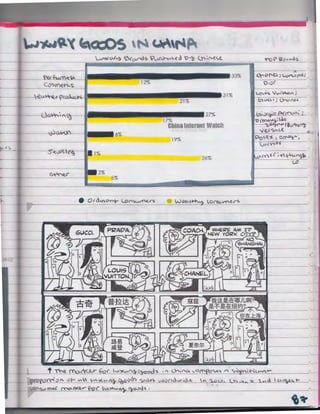 LUXURY GOODS IN CHINA
Luxury Brands Purchased By Chinese
TOP Brands
Perfumes &
Cosmetics
33%
12%
Chanel; Lancome;
Dior
Leather products
31%
21%
Louis Vuitton;
Gucci; Chanel
Clothing
27%
17%
Giorgio Armani;
Versace
China Internet Watch
Watch
6%
19%
Rolex; Omega;
Jewelry
1%
26%
Other
2%
6%
Ordinary Consumers
Wealthy Consumers
GUCCI.
PRADA.
COACH.
WHERE AM I?
NEW YORK CITY?
NO
SHANGHAI.
LOUIS
VUITTON.
CHANEL.
古奇
普拉达
蔻驰
我这是在哪儿啊?
是不是在纽约?
你在上海
路易
威登
夏奈尔
↑ The market for luxury goods in China comprises a significant
proportion of all luxury goods sales worldwide. In 2012, China is 2nd largest
consumer market for luxury goods.